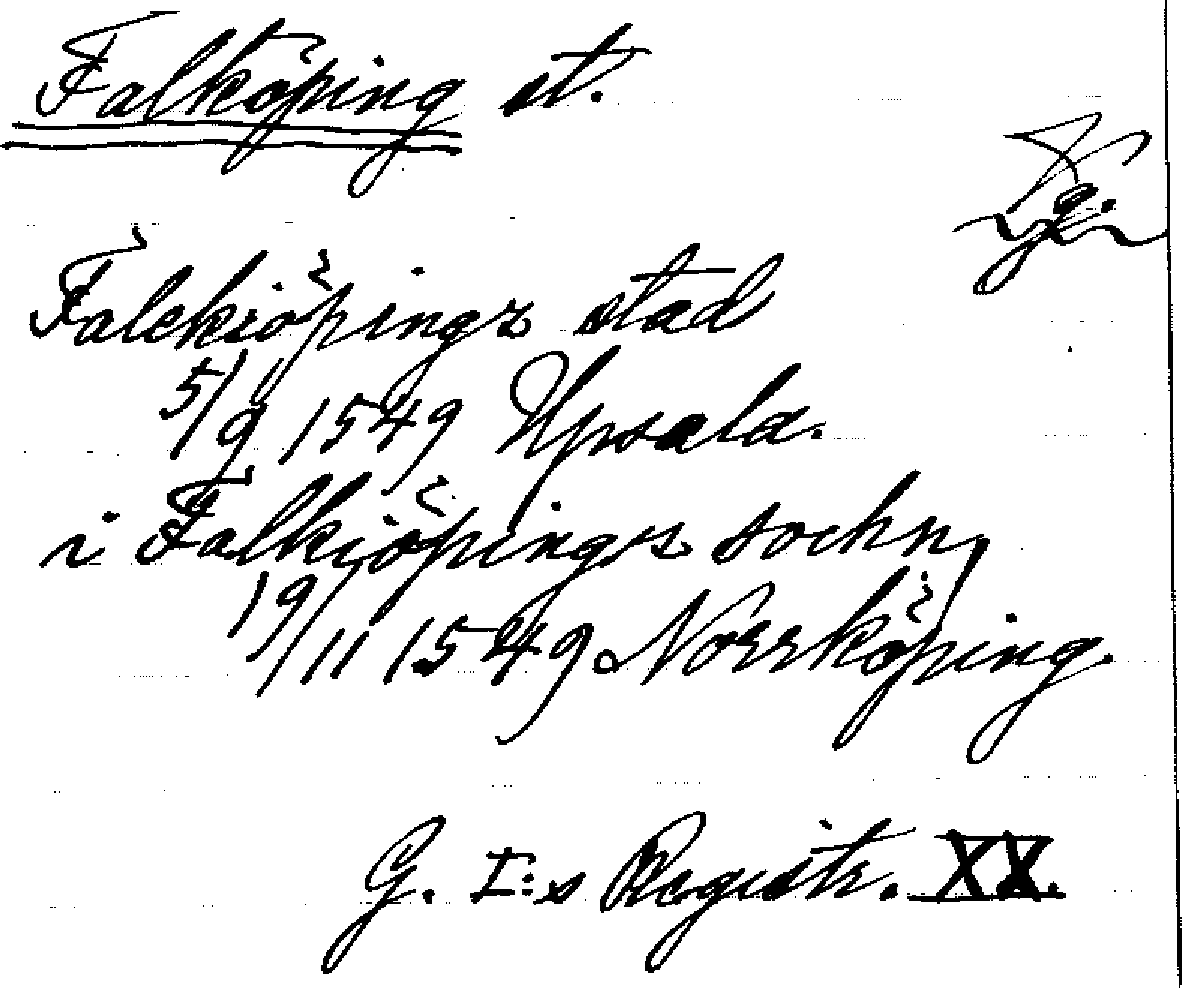 Falköping st.
Vg.
Falckiöpingz stad
5/9 1549 Upsala.
i Falkiöpingz sochn,
19/11 1549. Norrköping.
G. I:s Registr. XX.